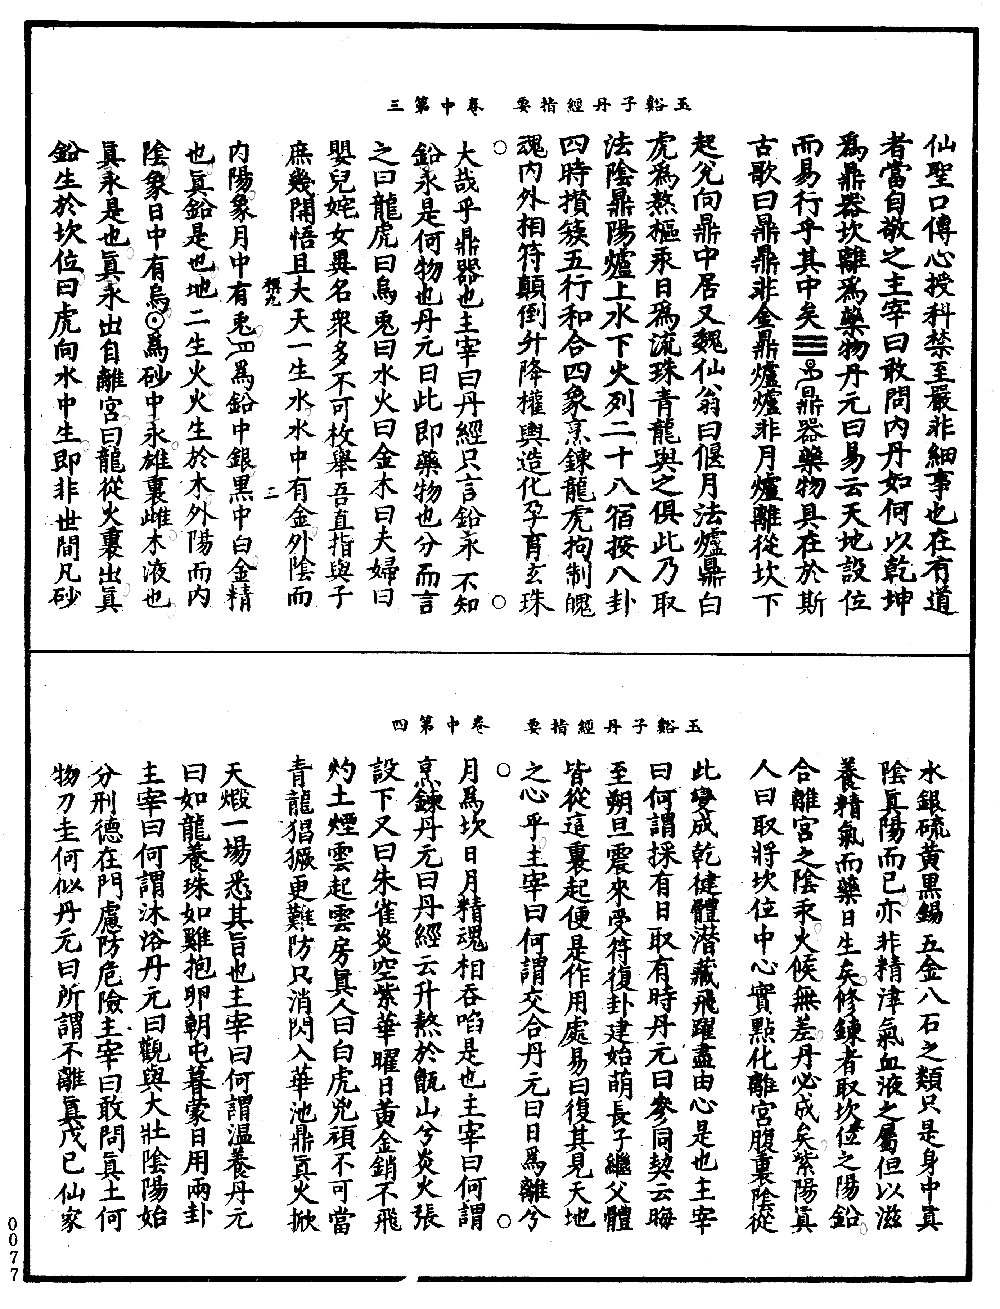 玉谿子丹經指要　卷中第三
仙聖口傳心授科禁至嚴非細事也在有道
者當自敬之主宰曰敢問內丹如何以乾坤
爲鼎器坎離爲藥物丹元曰易云天地設位
而易行乎其中矣☰鼎器藥物具在於斯
古歌曰鼎鼎非金鼎爐爐非月爐離從坎下
起兌向鼎中居又魏仙翁曰偃月法爐鼎白
虎爲熬樞汞日爲流珠青龍與之俱此乃取
法陰鼎陽爐上水下火列二十八宿按八卦
四時攢簇五行和合四象烹鍊龍虎拘制魄
魂內外相符顛倒升降權輿造化孕育玄珠
大哉乎鼎器也主宰曰丹經只言鉛汞不知
鉛汞是何物也丹元曰此即藥物也分而言
之曰龍虎曰烏兎曰水火曰金木曰夫婦曰
嬰兒姹女異名衆多不可枚舉吾直指與子
庶幾開悟且夫天一生水水中有金外陰而
稱九　二
內陽象月中有兎爲鉛中銀黑中白金精
也眞鉛是也地二生火火生於木外陽而內
陰象日中有烏⊙爲砂中汞雄裏雌木液也
眞汞是也眞汞出自離宮曰龍從火裏出眞
鉛生於坎位曰虎向水中生即非世間凡砂
玉谿子丹經指要　卷中第四
水銀硫黃黑錫五金八石之類只是身中眞
陰眞陽而已亦非精津氣血液之屬但以滋
養精氣而藥日生矣修鍊者取坎位之陽鉛
合離宮之陰汞火候無差丹必成矣紫陽眞
人曰取將坎位中心實點化離宮腹裏陰從
此變成乾健體潛藏飛躍盡由心是也主宰
曰何謂採有日取有時丹元曰參同契云晦
至朔旦震來受符復卦建始萌長子繼父體
皆從這裏起便是作用處易曰復其見天地
之心乎主宰曰何謂交合丹元曰日爲離兮
月爲坎日月精魂相吞啗是也主宰曰何謂
烹鍊丹元曰丹經云升熬於甑山兮炎火張
設下又曰朱雀炎空紫華曜日黃金銷不飛
灼土煙雲起雲房眞人曰白虎兇頑不可當
青龍猖獗更難防只消閃入華池鼎眞火掀
天煅一場悉其旨也主宰曰何謂溫養丹元
曰如龍養珠如雞抱卵朝屯暮蒙日用兩卦
主宰曰何謂沐浴丹元曰觀與大壯陰陽始
分刑德在門慮防危險主宰曰敢問眞土何
物刀圭何似丹元曰所謂不離眞戊己仙家
0077